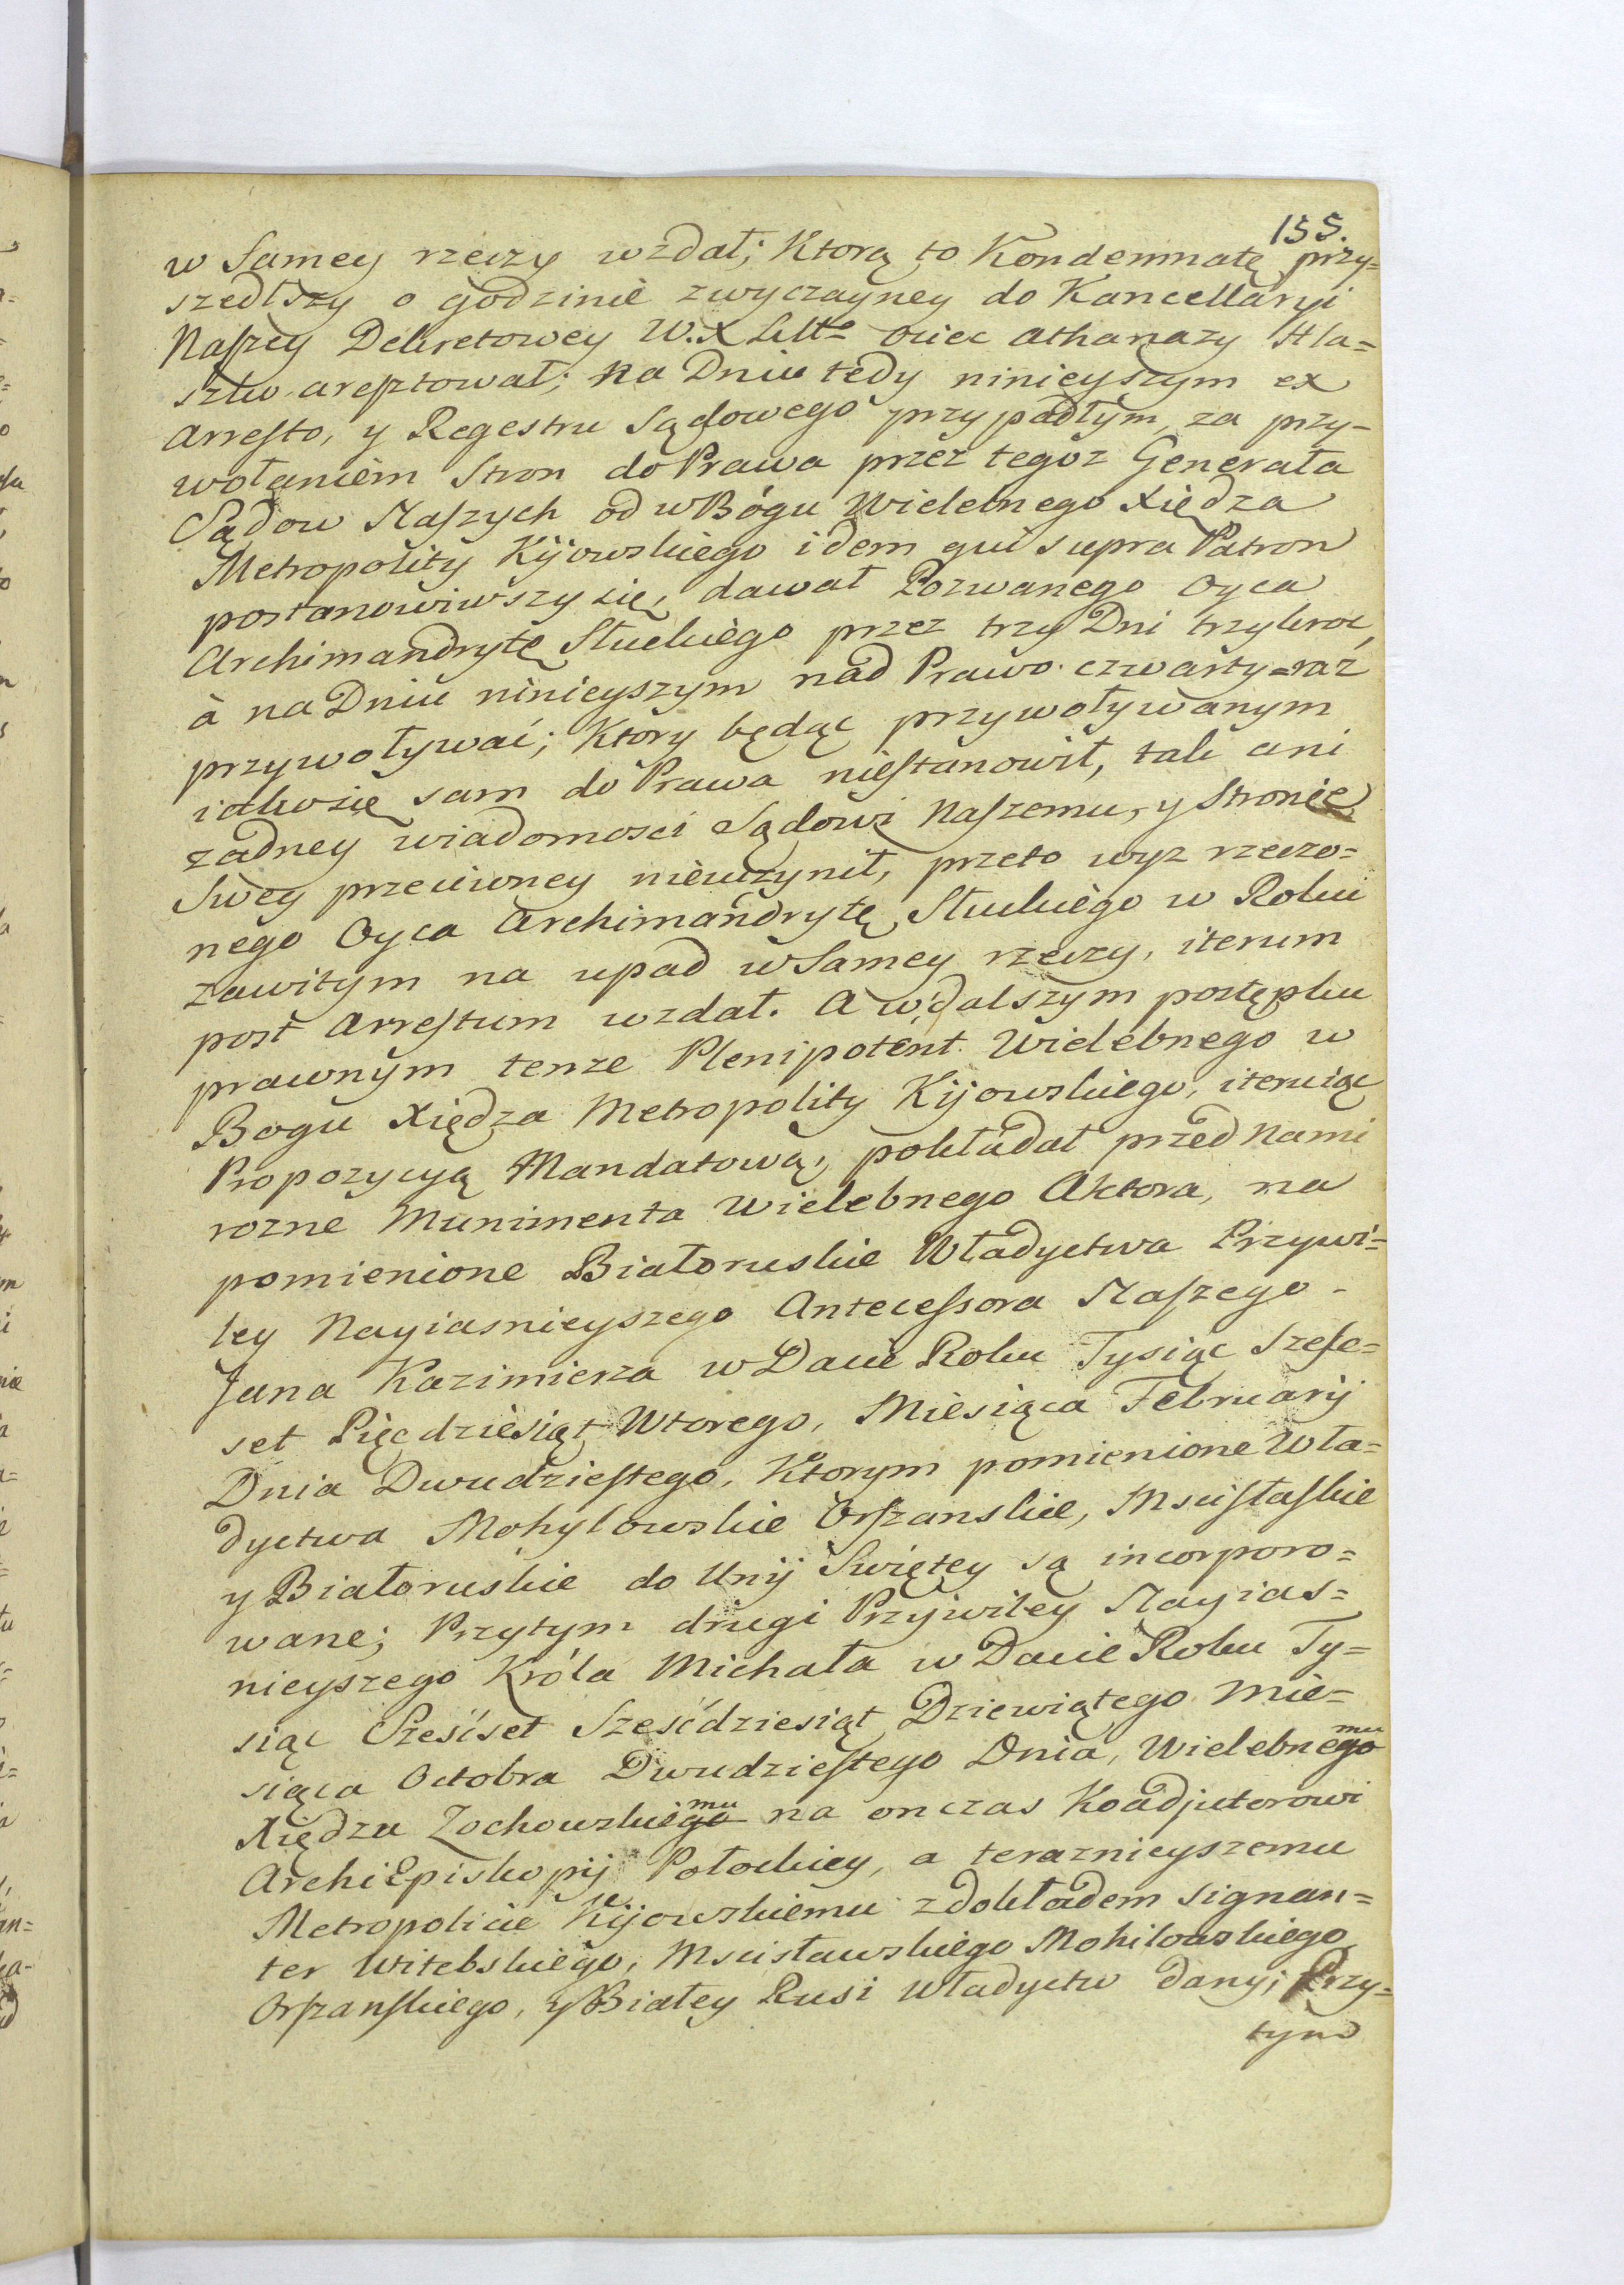 155.
w Samey rzeczy wzdał; Ktorą to Kondemnatę przy=
szedłszy o godzinie zwyczayney do Kancellaryi
Naszey Dekretowey W. X Litt° ociec Athanazy Hla=
sztw aresztował; Na Dniu tedy ninieyszym ex
Arresto, y Regestru Sądowego przypadłym, za przy-
wołaniem Stron do Prawa przez tegoz Generała
Sądow Naszych od w Bógu Wielebnego Xiędza
Metropolity Kijowskiego idem qui supra Patron
postanowiwszy się, dawał Pozwanego Oyca
Archimandrytę Słuckiego przez trzy Dni trzykroc,
à na Dniu ninieyszym nad Prawo czwarty=raz
przywoływać; Ktory będąc przywoływanym
iako się sam do Prawa niestanowił, tak ani
zadney wiadomosci Sądowi Naszemu, y Stronie
Swey przeciwney nieuczynił, przeto wyz rzeczo=
nego Oyca Archimandrytę Słuckiego w Roku
zawitym na upad w Samey rzeczy, iterum
post Arrestum wzdał. A w dalszym postępku
prawnym tenze Plenipotent Wielebnego w
Bogu Xiędza Metropolity Kijowskiego, iteruiąc
Propozycyą Mandatową, pokładał przed Nami
rozne Munimenta Wielebnego Aktora, na
pomienione Białoruskie Władyctwa Przywi=
ley Nayiasnieyszego Antecessora Naszego -
Jana Kazimierza w Dacie Roku Tysiąc Szesc=
set Pięcdziesiąt Wtorego, Miesiąca Februarij
Dnia Dwudziestego, Ktorym pomienione Wła=
dyctwa Mohylowskie Orszanskie, Mscisłaskie
y Białoruskie do Unij Swiętey są incorporo=
wane; Przytym drugi Przywiley Nayias=
nieyszego Króla Michała w Dacie Roku Ty=
siąc Szesćset Szesćdziesiąt Dziewiątego Mie=
siąca Octobra Dwudziestego Dnia, Wielebnego mu
Xiędza Zochowskiego mu na onczas Koadjutorowi
ArchiEpiskopij Połockiey, a teraznieyszemu
Metropolicie Kijowskiemu z dokładem signan=
ter Witebskiego, Mscisławskiego Mohilowskiego
Orszanskiego, y Białey Rusi Władyctw dany; Przy=
tym